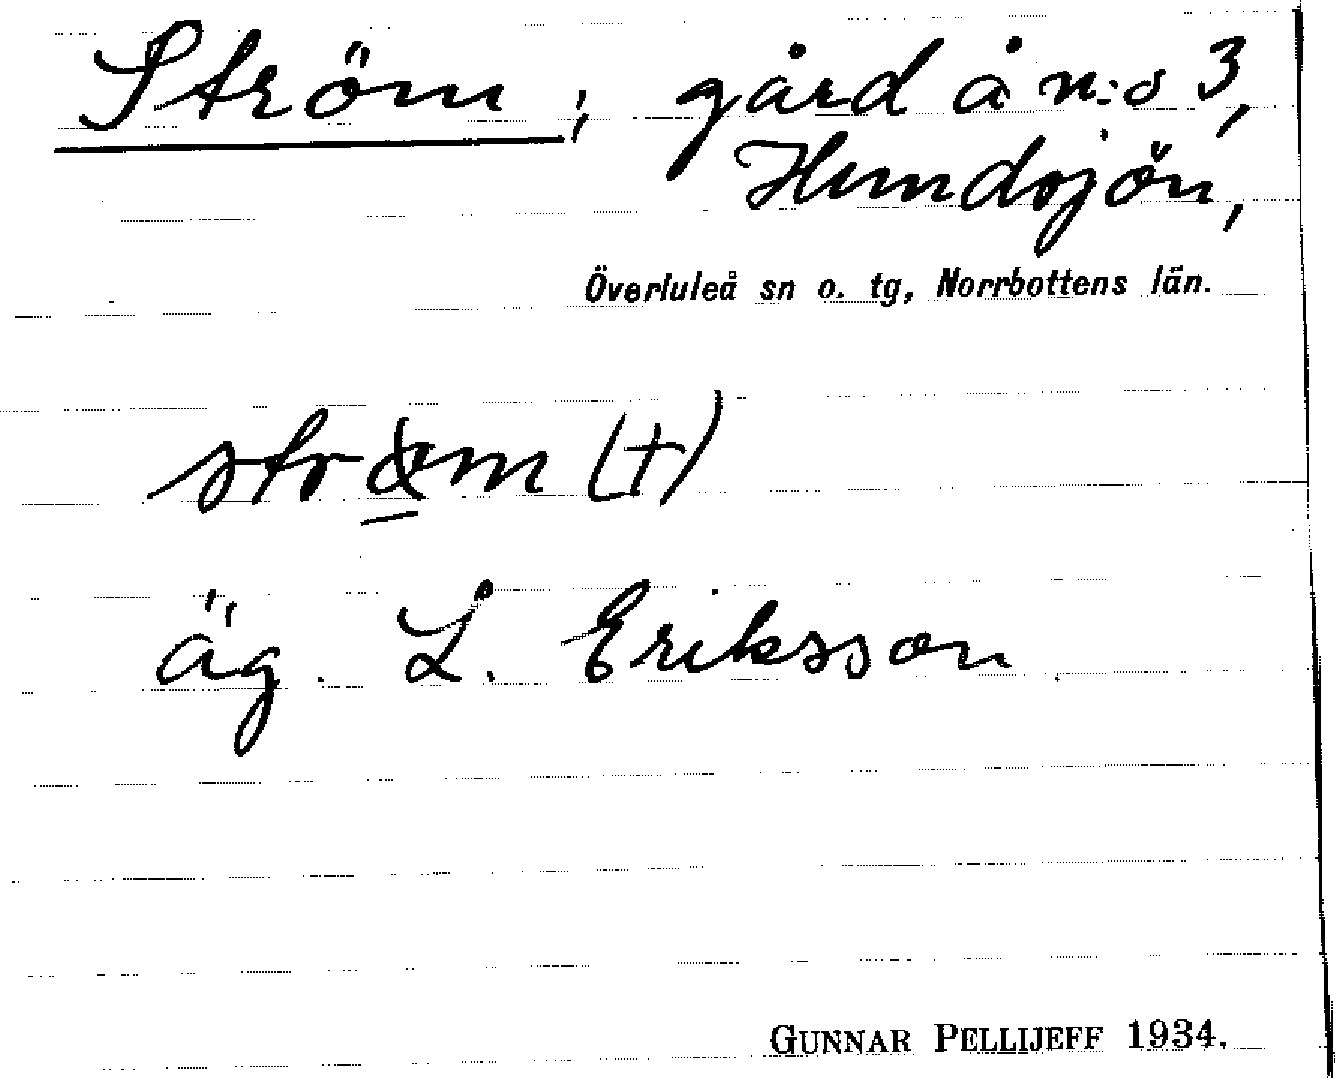 Ström, gård å n:o 3,
Hundsjön,
Överluleå sn o. tg, Norrbottens län.
(†)
äg. L. Eriksson
GUNNAR PELLIJEFF 1934.